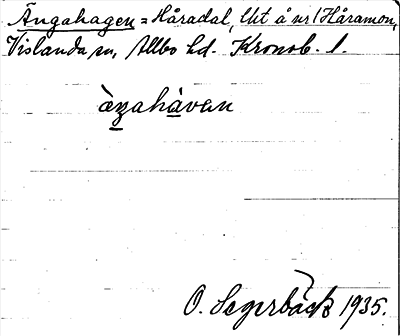 Ängahagen = Håradal, Ut å nr 1 Håramon,
Vislanda sn, Allbo hd. Kronob. l.
àŋahàvan
O. Segerbäck 1935.